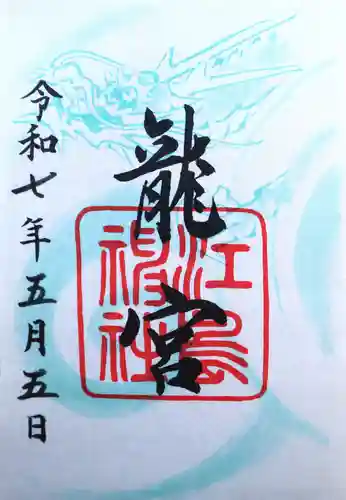 龍宮
江島神社
令和七年五月五日